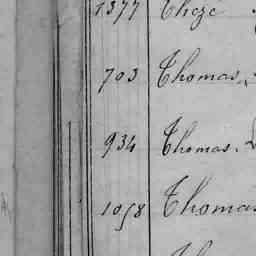 1377 Thezé
703 Thomas,
934 Thomas.
1058 Thomas